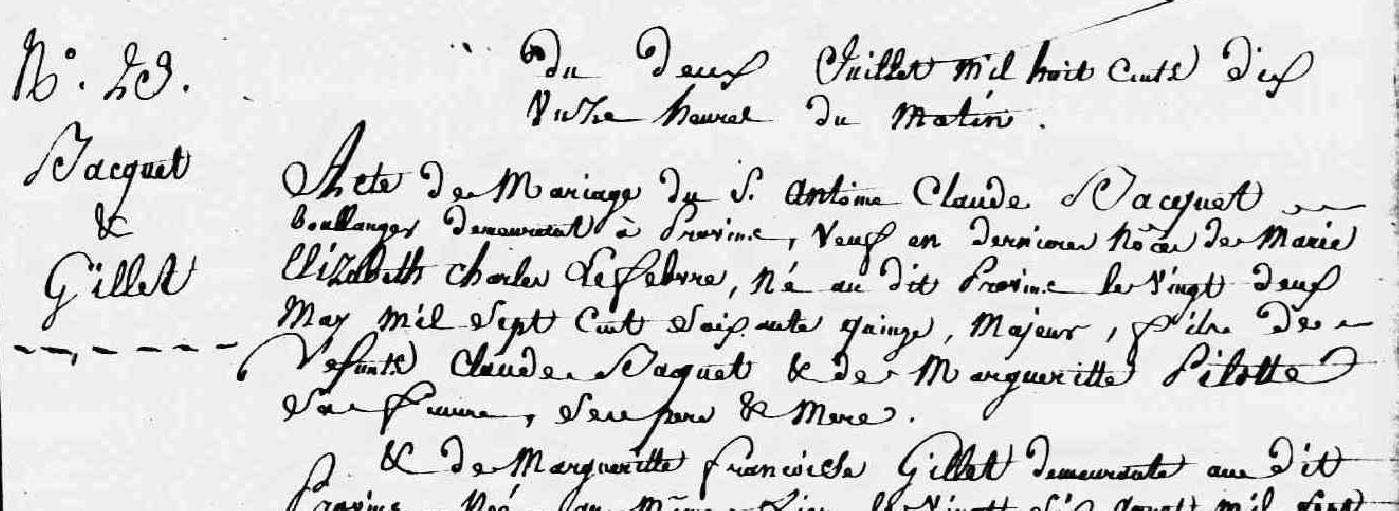 N°. 23.
Jacquet
&
Gillet
Du deux Juillet mil huit Cents dix
Onze heures du Matin.
Acte de Mariage du S. Antoine Claude Jacquet
boullanger demeurant à Provins, Veuf en dernieres Nôces de Marie
Elizabeth Charles Lefebvre, Né au dit Provins le Vingt deux
May mil Sept Cent Soixante quinze, Majeur, fils de
Defunts Claude Jaquet & de Margueritte Pilotte
Sa femme, Ses pere & Mere.
& de Margueritte francoise Gillet demeurante au dit
Provins, Née au Même Lieu le Vingt Six Aoust mil Sept